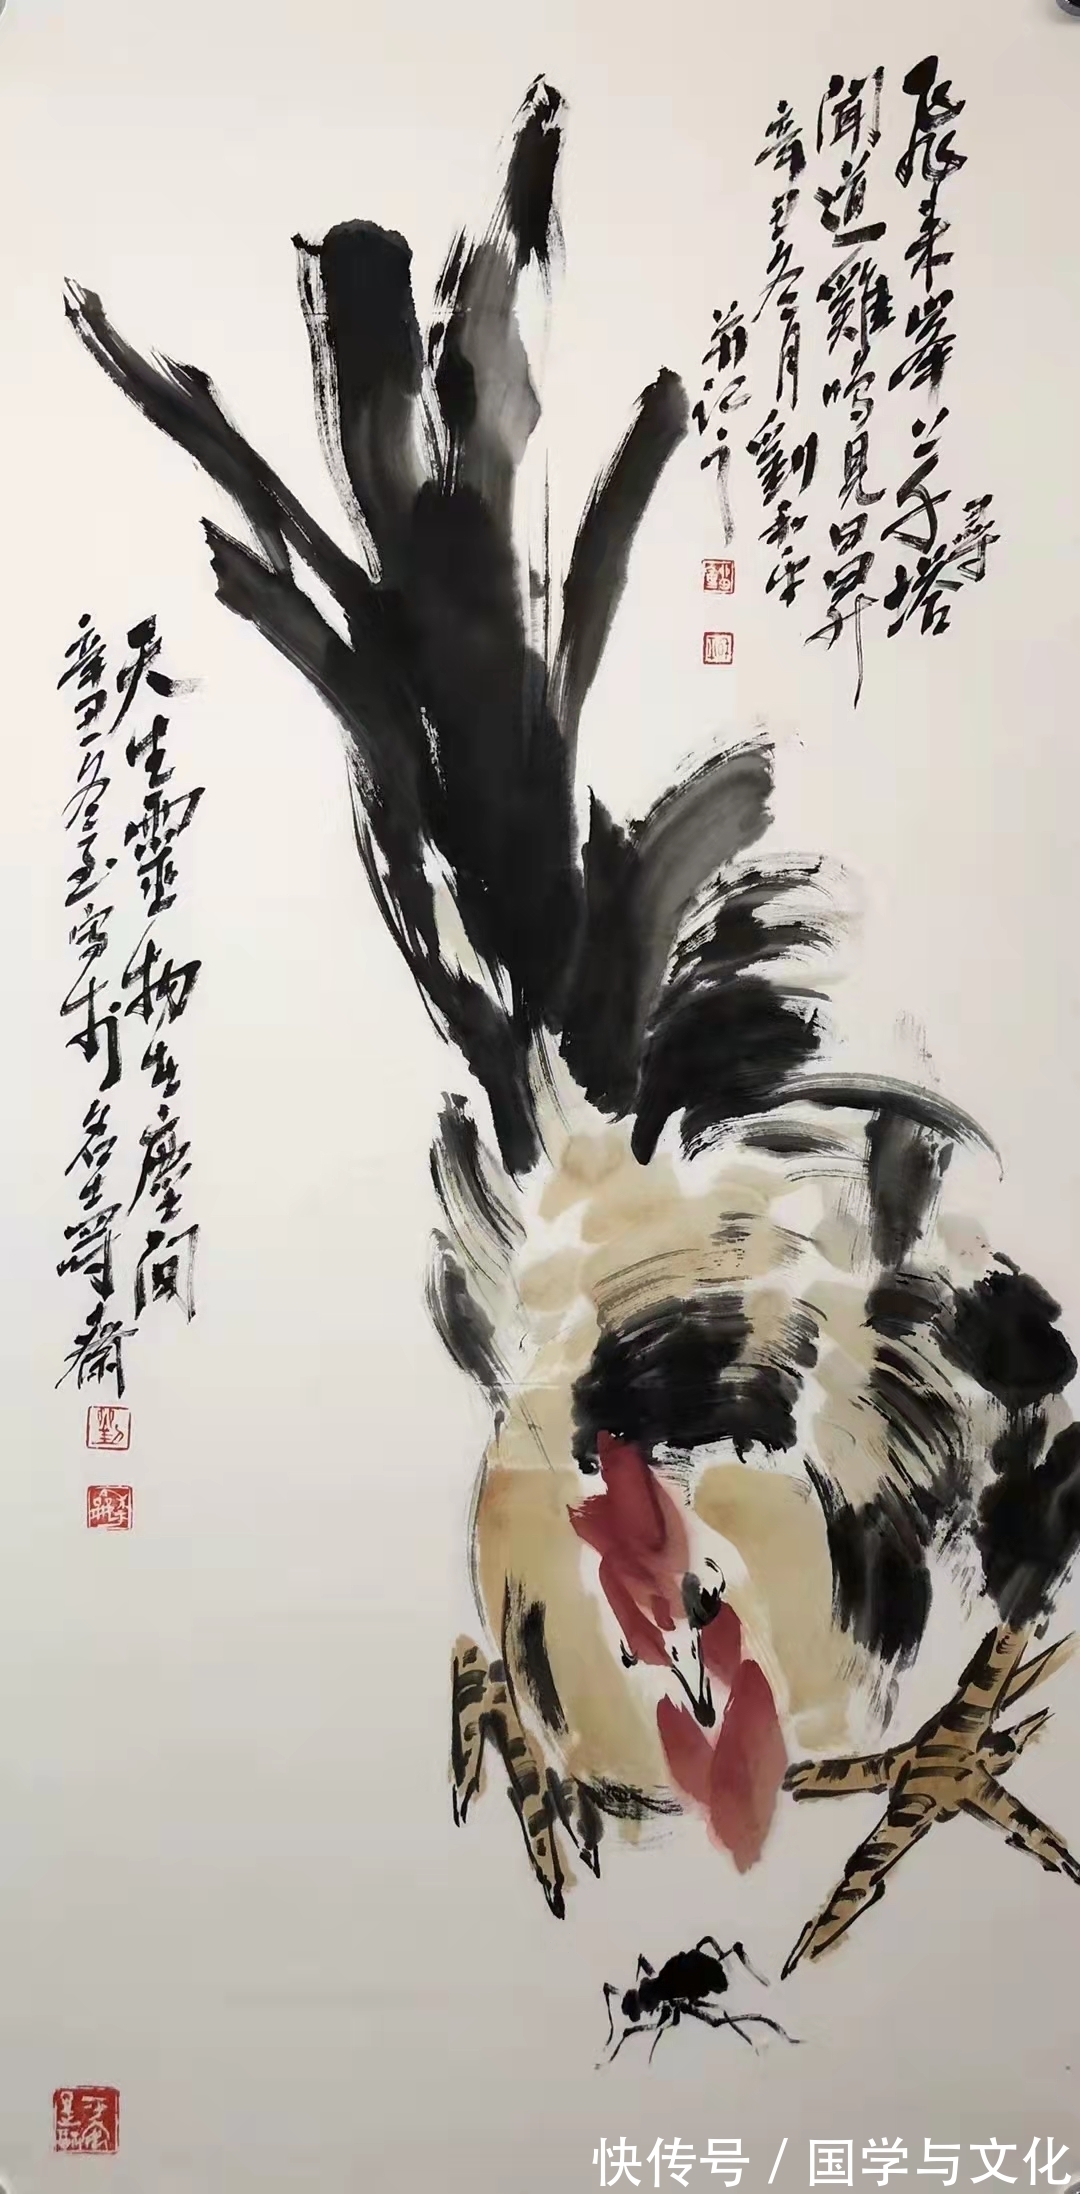 飛來峯上千塔
尋
聞道雞鳴見日昇
辛丑冬月劉和平
并記之
天生靈物在塵间
辛丑冬至寫於名士尋齋
劉
快传号 / 国学与文化